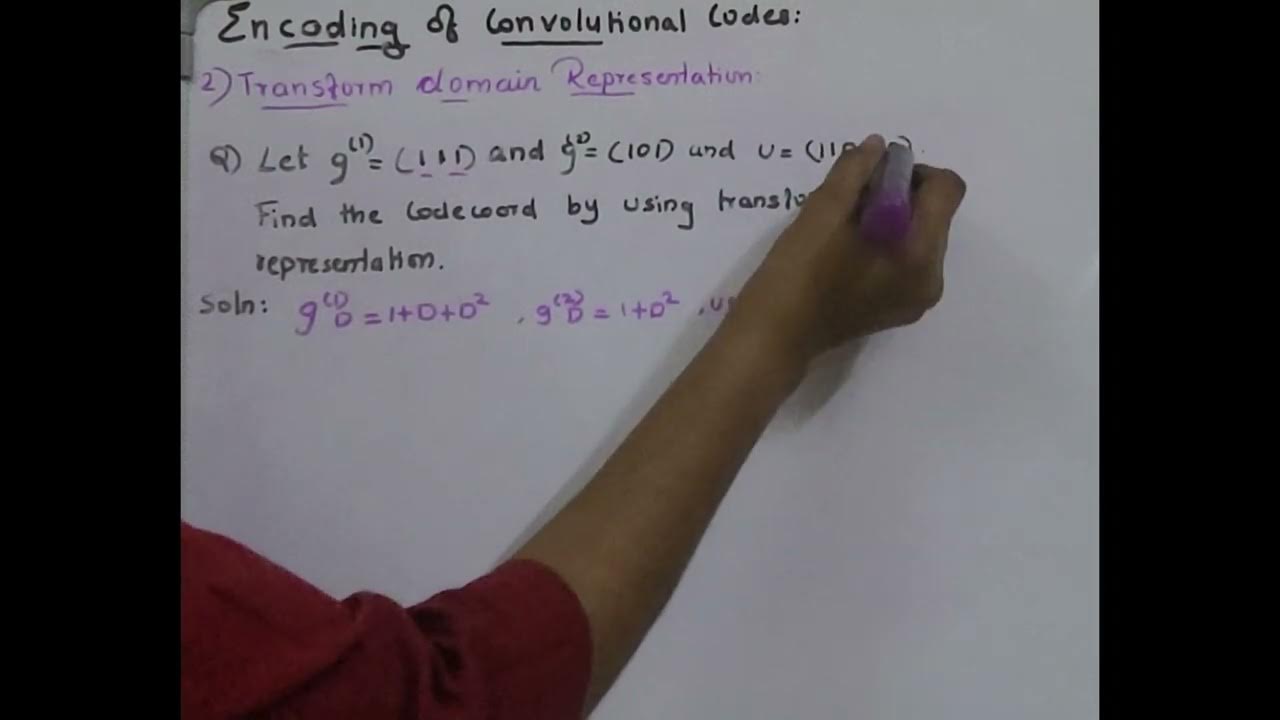 Encoding of Convolutional Codes:
2) Transform domain Representation:
Q) Let g(1) = (111) and g(2) = (101) and U = (11
Find the Codeword by using
representation.
Soln: g(1)D = 1+D+D², g(2)D = 1+D²,